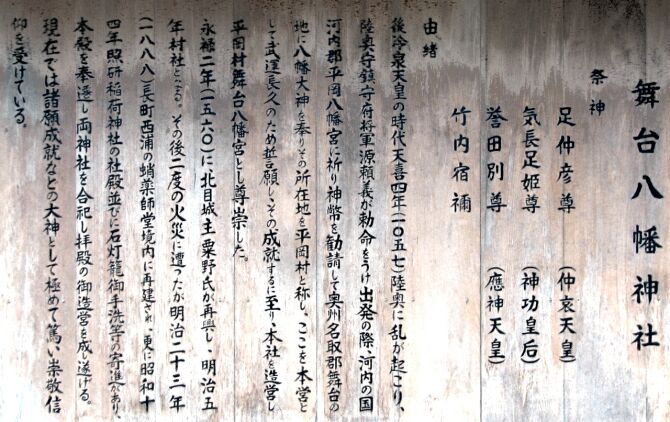 舞台八幡神社
祭神
足仲彦尊 （仲哀天皇）
気長足姫尊 （神功皇后）
誉田別尊 （應神天皇）
竹内宿禰
由緒
後冷泉天皇の時代天喜四年（一〇五七）陸奥に乱が起こり、
陸奥守鎮守府将軍源頼義が勅命をうけ出発の際、河内の国
河内郡平岡八幡宮に祈り神幣を勧請して奥州名取郡舞台の
地に八幡大神を奉りその所在地を平岡村と称し、ここを本営と
して武運長久のため誓願し、その成就するに至り、本社を造営し
平岡村舞台八幡宮とし尊崇した。
永禄二年（一五六〇）に北目城主粟野氏が再興し、明治五
年村社となる。その後二度の火災に遭ったが明治二十三年
（一八八八）長町西浦の蛸薬師堂境内に再建され、更に昭和十
四年照研稲荷神社の社殿並びに石灯籠御手洗等の寄進があり、
本殿を奉遷し両神社を合祀し拝殿の御造営を成し遂げる。
現在では諸願成就などの大神として極めて篤い崇敬信
仰を受けている。